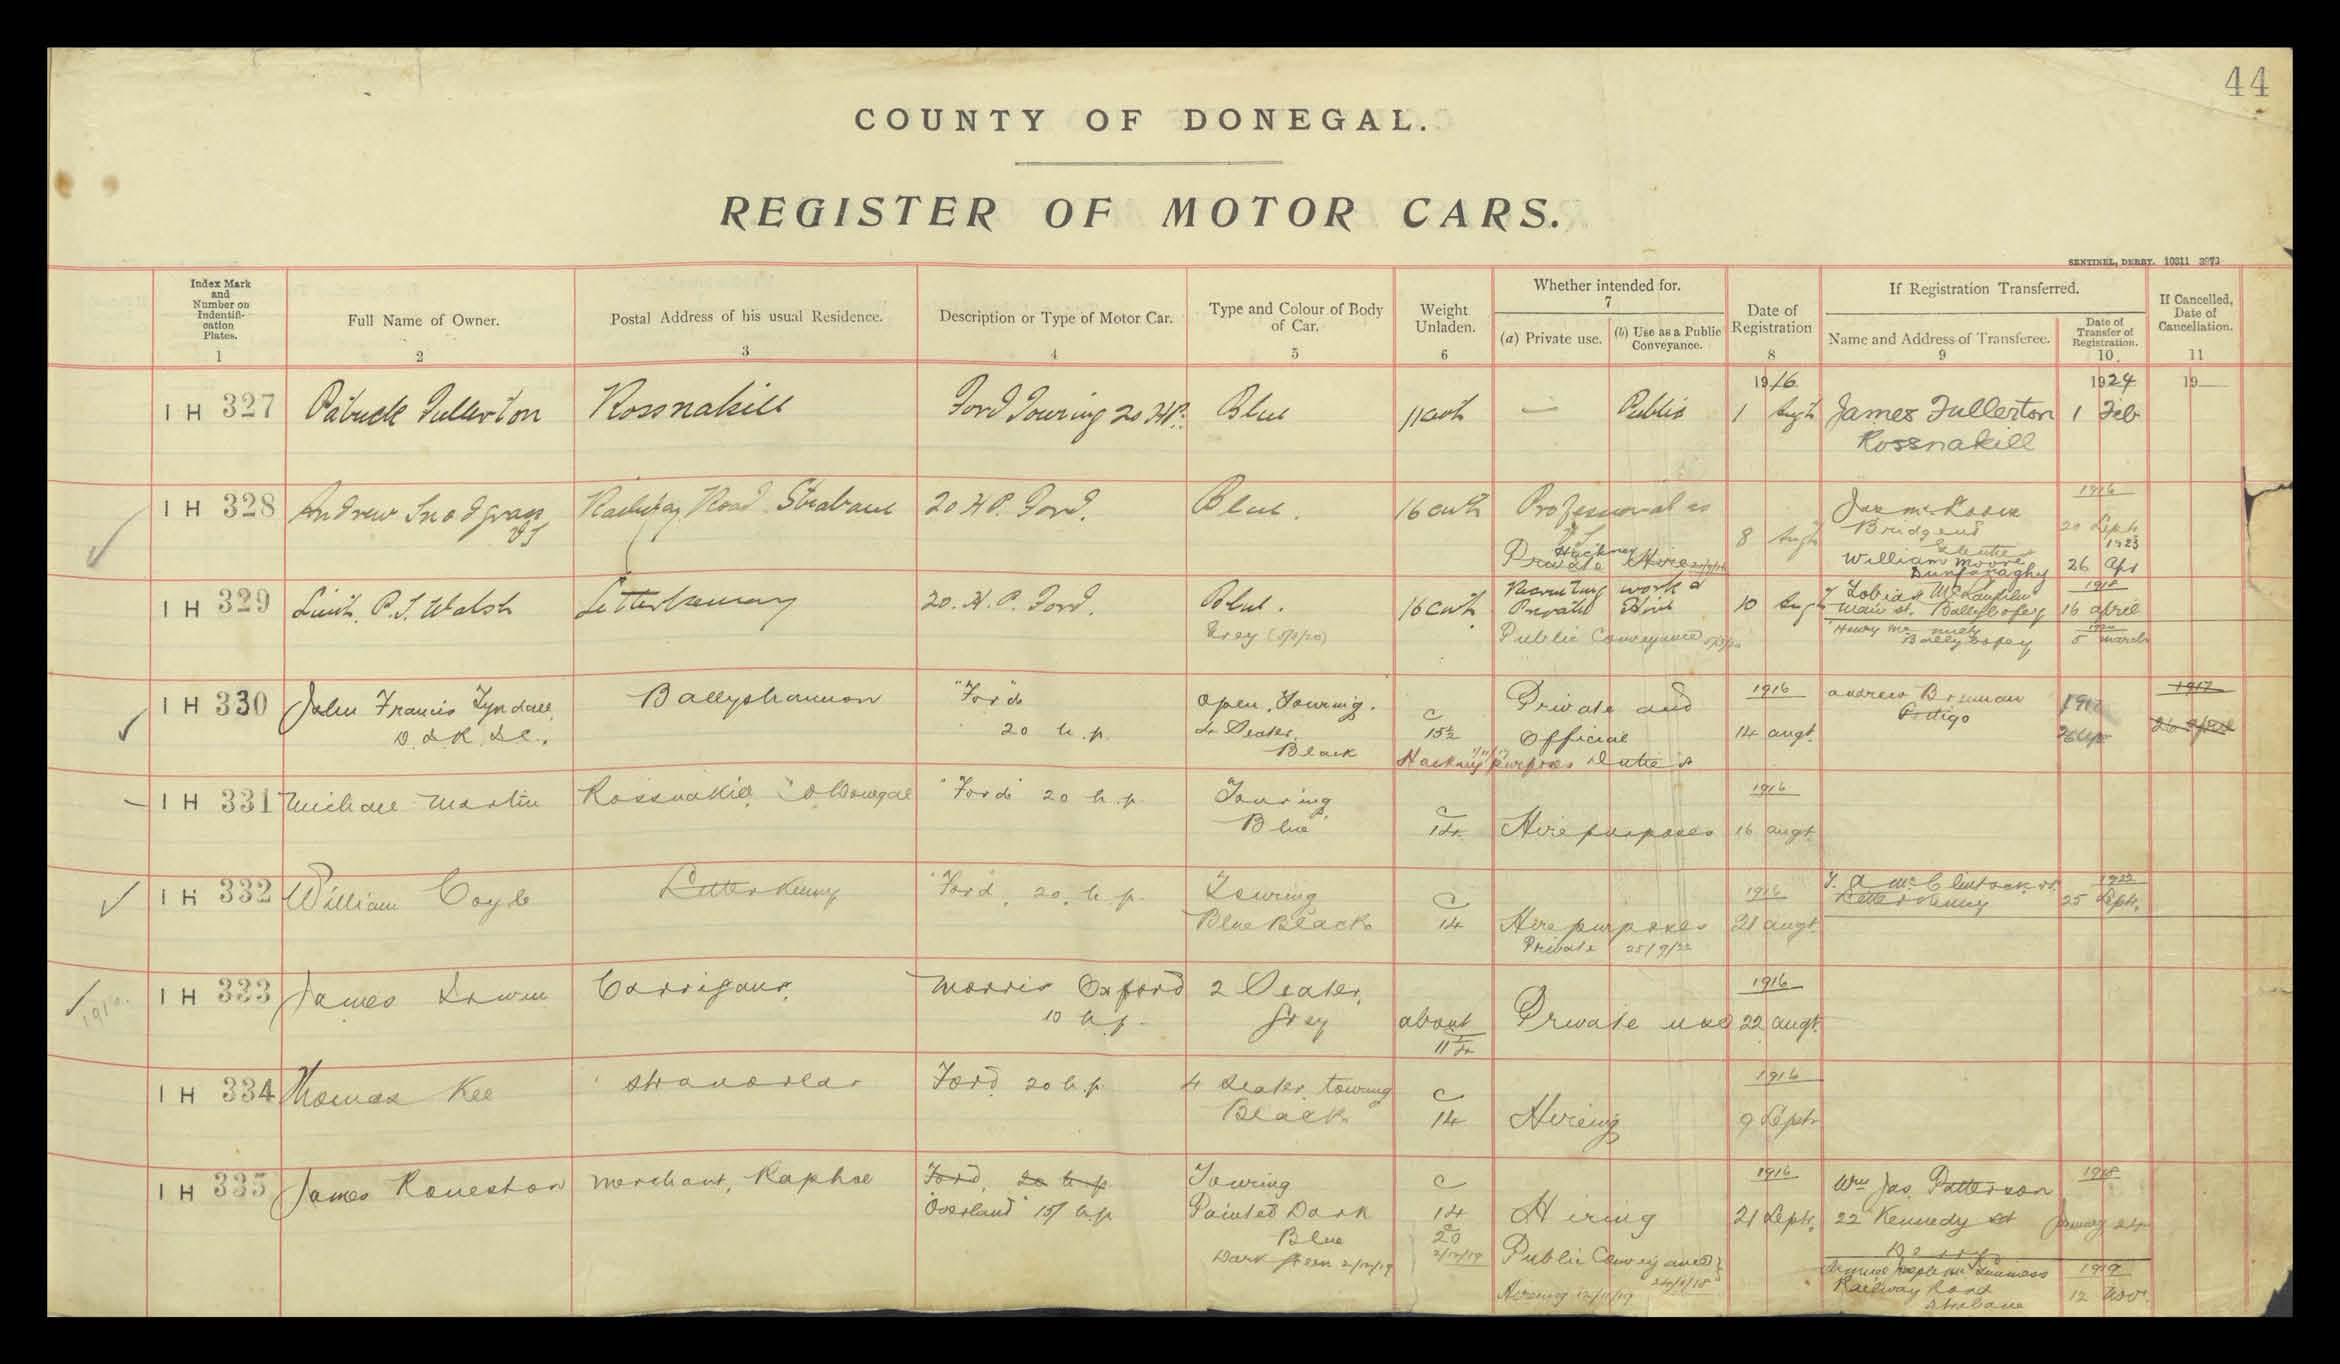 44
COUNTY OF DONEGAL.
REGISTER OF MOTOR CARS.
SENTINEL, DERRY. 10311 3973
Index Mark
and
Number on
Indentifi-
cation
Plates.
1
Full Name of Owner.
2
Postal Address of his usual Residence.
3
Description or Type of Motor Car.
4
Type and Colour of Body
of Car.
5
Weight
Unladen.
6
Whether intended for.
7
(a) Private use.
(b) Use as a Public
Conveyance.
Date of
Registration
8
If Registration Transferred.
Name and Address of Transferee.
9
Date of
Transfer of
Registration.
10.
If Cancelled,
Date of
Cancellation.
11
1916
1924
19
I H 327 Patrick Fullerton Rossnakill Ford Touring 20 H.P. Blue 11 cwt — Public 1 Augt James Fullerton 1 Feb
Rossnakill
I H 328 Andrew Snodgrass Railway Road Strabane 20 H.P. Ford. Blue. 16 cwt Professional as
VS
8 Augt
Hackney
Private Hire
1916
Bridgend
20 Sept.
1923
William Moore
Dunfanaghy
26 Apr
I H 329 Lieut. P.J. Walsh Letterkenny 20. H. P. Ford. Blue. 16 cwt. Recruiting work &
Private Hire
10 Augt
Grey (5/3/20)
Public Conveyance 5/3/20
Tobias McLaughlin
Main St. Ballybofey
1918
16 April
Henry McNulty
Ballybofey
1920
5 March
I H 330 John Francis Tyndall Ballyshannon "Ford"
D.I. R.I.C.
20 h.p.
Open. Touring.
4 Seater.
Black
c
15½
Private and
Official
Duties
Hackney purposes
1916
14 augt.
Andrew Brennan
Pettigo
1917
26 Apr
1917
26 April
I H 331 Michael Martin Rossnakill Co Donegal "Ford" 20 h.p. Touring
Blue
c
14
Hire purposes
1916
16 augt.
I H 332 William Coyle Letterkenny "Ford", 20. h.p. Touring
Blue Black
c
14
Hire purposes
Private 25/9/22
1916
21 augt.
McClintock
Letterkenny
1922
25 Sept.
1916.
I H 333 James Irwin Carrigans, Morris Oxford
10 h.p.
2 Seater.
Grey
about
Private use
1916
22 augt.
I H 334 Thomas Kee Stranorlar Ford 20 h.p. 4 Seater touring
Black
c
14
Hireing
1916
9 Sept.
I H 335 James Roulston Merchant, Raphoe Ford, 20 h.p.
"Overland" 15/ h.p.
Touring
Painted Dark
Blue
Dark Green 2/12/19
c
14
c
20
2/12/19
Hiring
Public Conveyance
24/1/18
Hireing 12/11/19
1916
21 Sept.
Wm Jas Patterson
22 Kennedy St
Derry
1918
January 24
Railway Road
Strabane
1919
12 Nov.